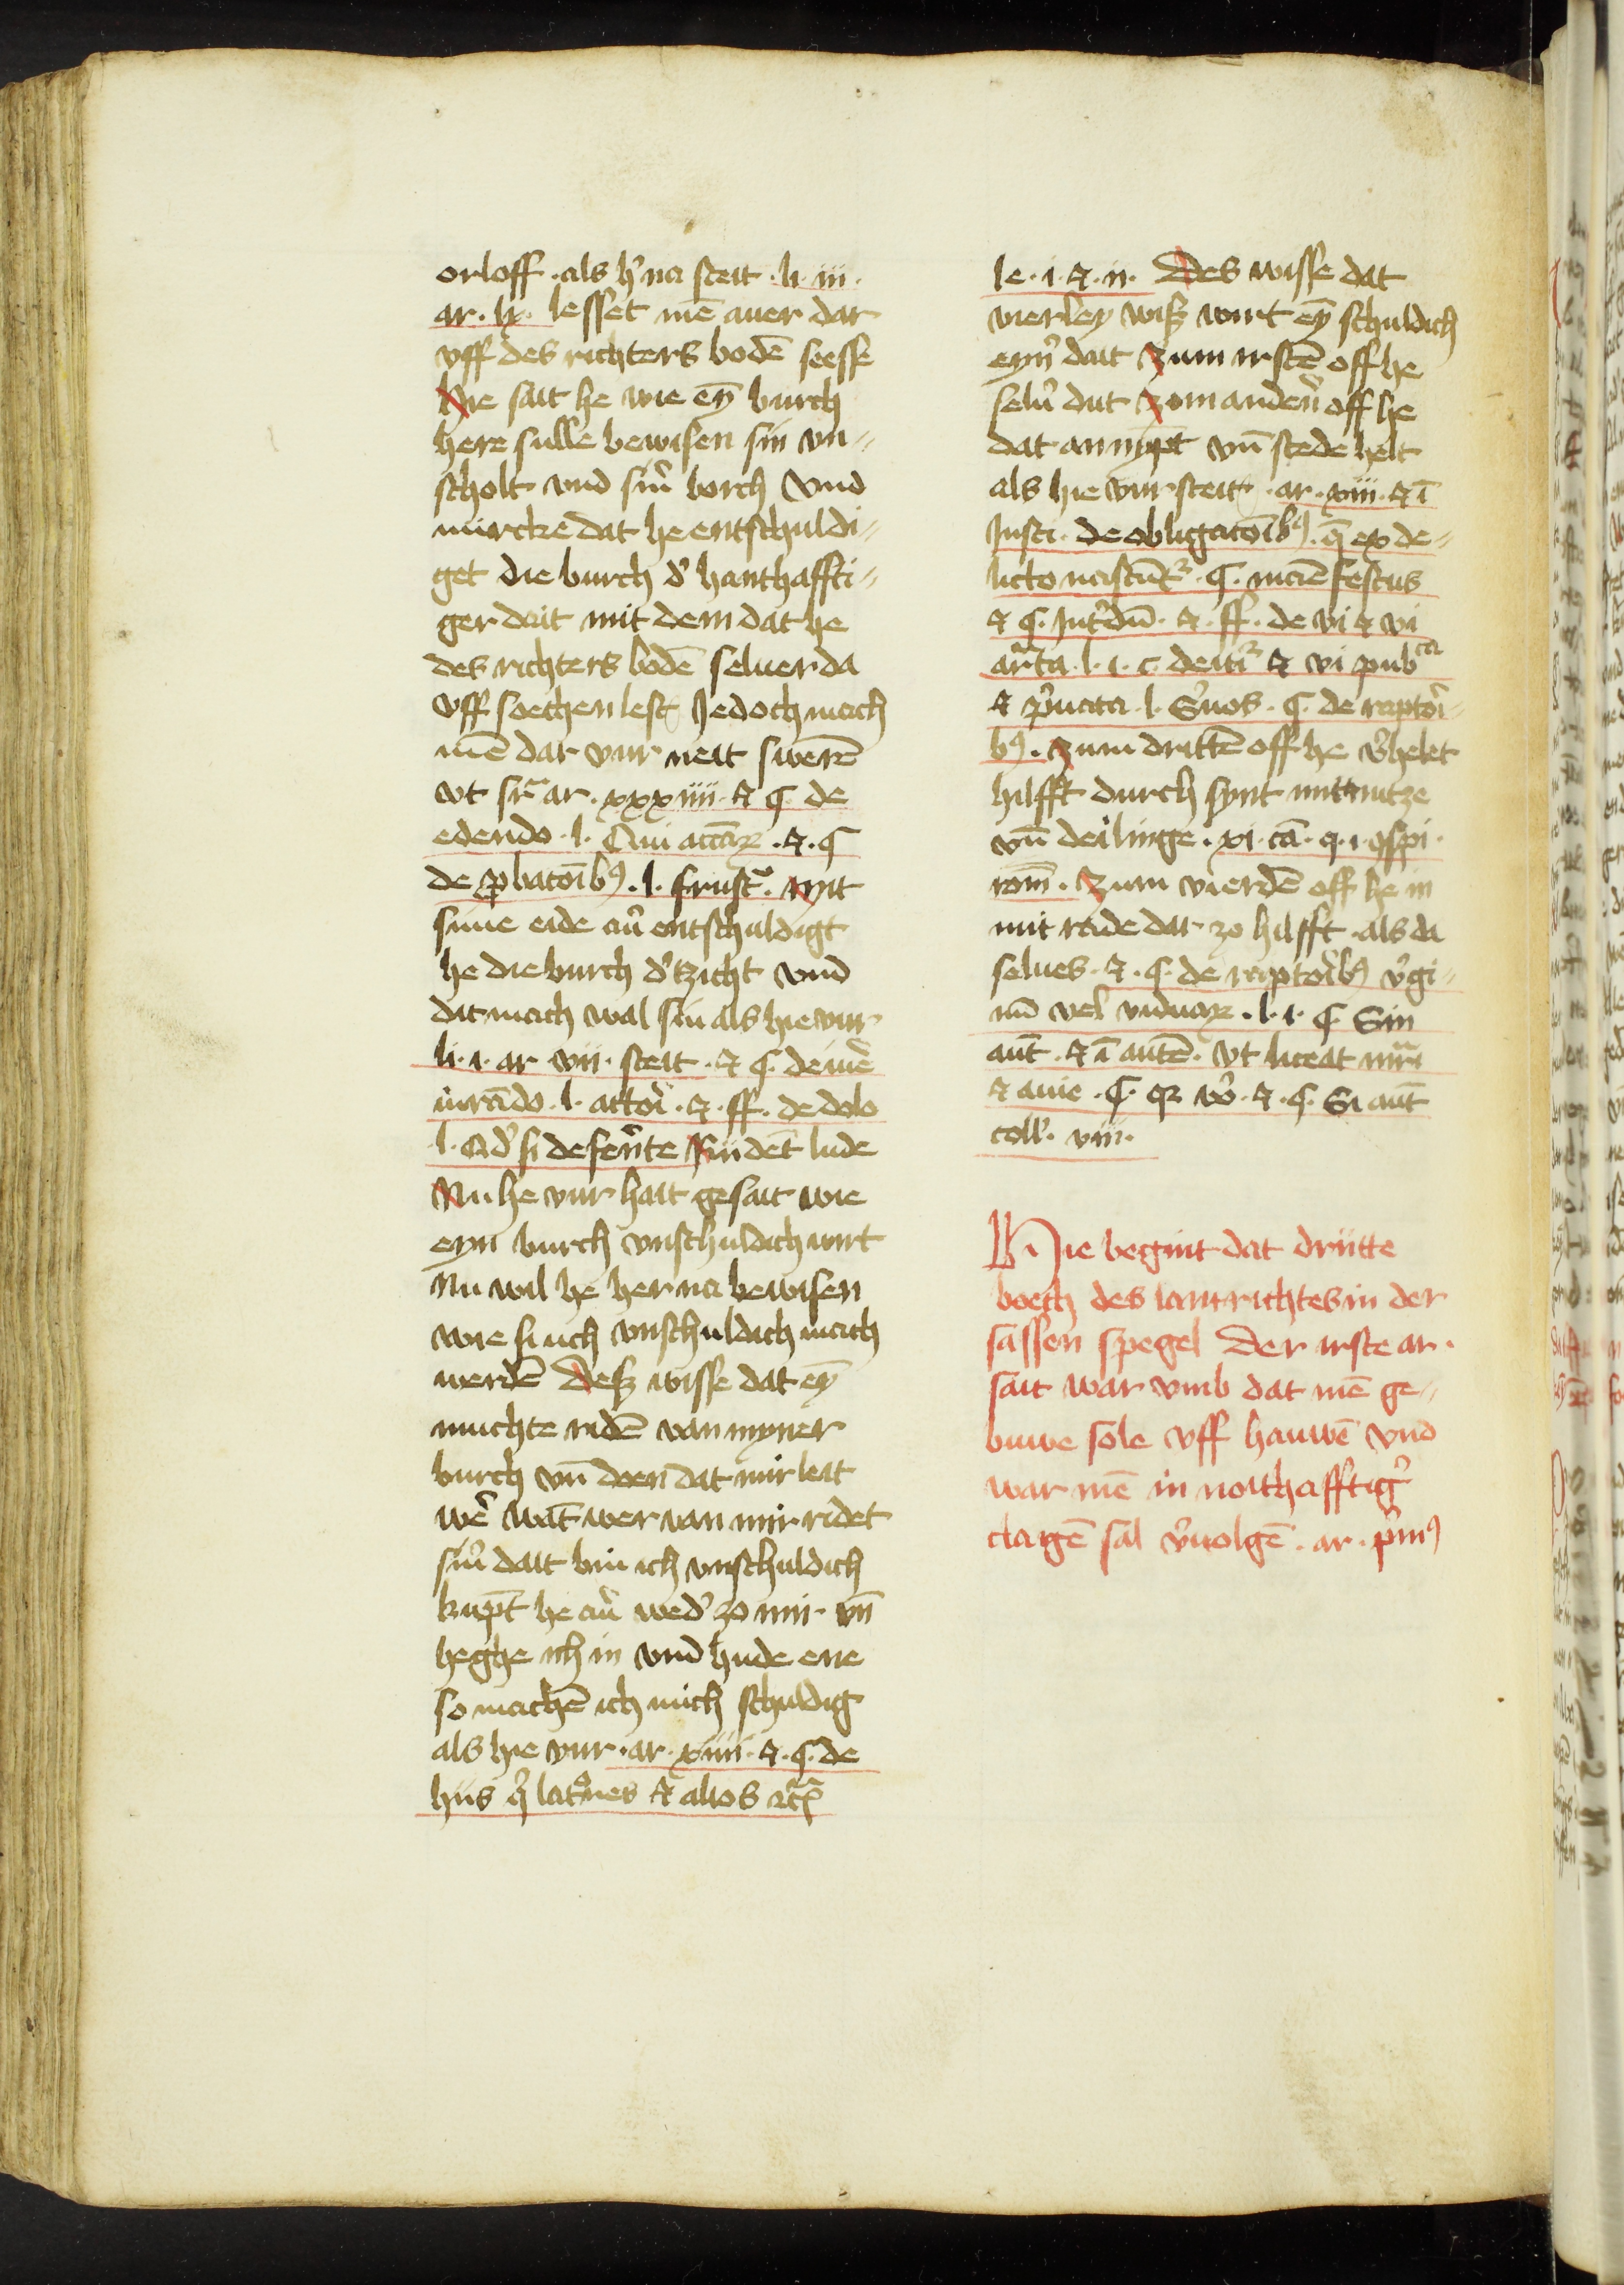 orloff · als h̓na steit · li · iii ·
ar · lx · lesset mē auer dar
vff des richters bodē seesse
Hie sait he wie eȳ burch
here sulle bewisen sin vn-
scholt vnd sin̓ borch Vnd
mircke dat he entschuldi-
get die burch d̓ hanthaffti-
ger dait mit dem dat he
des richters bodē seluer da
vff soechen lest Jedoch mach
mē dar vur neit swerē
vt sr̄ ar · xxxiiii · & C · de
edendo · l · Qui accāꝝ · & · C
de ꝓbatoībꝰ · l · frust᷑ · Mit
sime eide au̓ entschuldigt
he die burch d̓ tzicht vnd
dit mach wal sin als hie vur
li · i · ar vii · steit · & C · de iure
iurādo · l · actori · & · ff · de dolo
l · Qd̓ si defen̓te Rüdet lude
Nu he vur hait gesait wie
eyn burch vnschuldich wirt
Nu wil he her na bewisen
wie si uch vnschuldich mach
werdē Desz wisse dat eȳ
muchte ridē van myner
burch vn̄ doen dat mir leit
wer̓ wāt wer van mir ridet
sin̓ dait bin ich vnschuldich
kūpt he au̓ wed̓ zo mir vn̄
heghe ich in vnd hude ene
so machē ich mich schuldig
als hie vur · ar · xiiii · & · C · de
hiis q̓ lat̓nes & alios rc̄
le · i · & · ii · Des wisse dat
vierley wisz wirt eȳ schuldich
eyn̓ dait Zum irstē off he
selu̓ dut Zom anden̓ off he
dat an nȳpt vn̄ stede helt
als hie vur steit · ar · xiiii · & ī
Insti · de obligatoībꝰ · q̄ ex de-
licto nascūt᷑ · C · maīefestus
& C · Int̓dū · & · ff · de vi & vi
ar̄ta · l · i · c · de iti᷑ & vi pubᶜᵃ
& p̓uata · l · S̓uos · C · de raptori-
bꝰ · Zum drittē off he v̓helet
hilfft durch synt mit nutze
vn̄ deilinge · xi · cā · q · i · ꝯspi ·
rom̄ · Zum vierdē off he in
mit raide dar zo hilfft · als da
selues · & · C · de raptoribꝰ v̓gi-
nū vel viduaꝝ · l · i · C · Sin
aut̄ · & ī autē · vt liceat mr̄i
& auie · C · qꝫ vo̓ · & · C · Si aut̄
coll̓ · viii ·
Hie begint dat drütte
boech des lantrichtes in der
sassen spegel Der irste ar ·
sait war vmb dat mē ge-
buwe sole vff hauwē vnd
war mē in noithafftig̓
clagē sal v̓uolgē · ar · p̓mꝰ